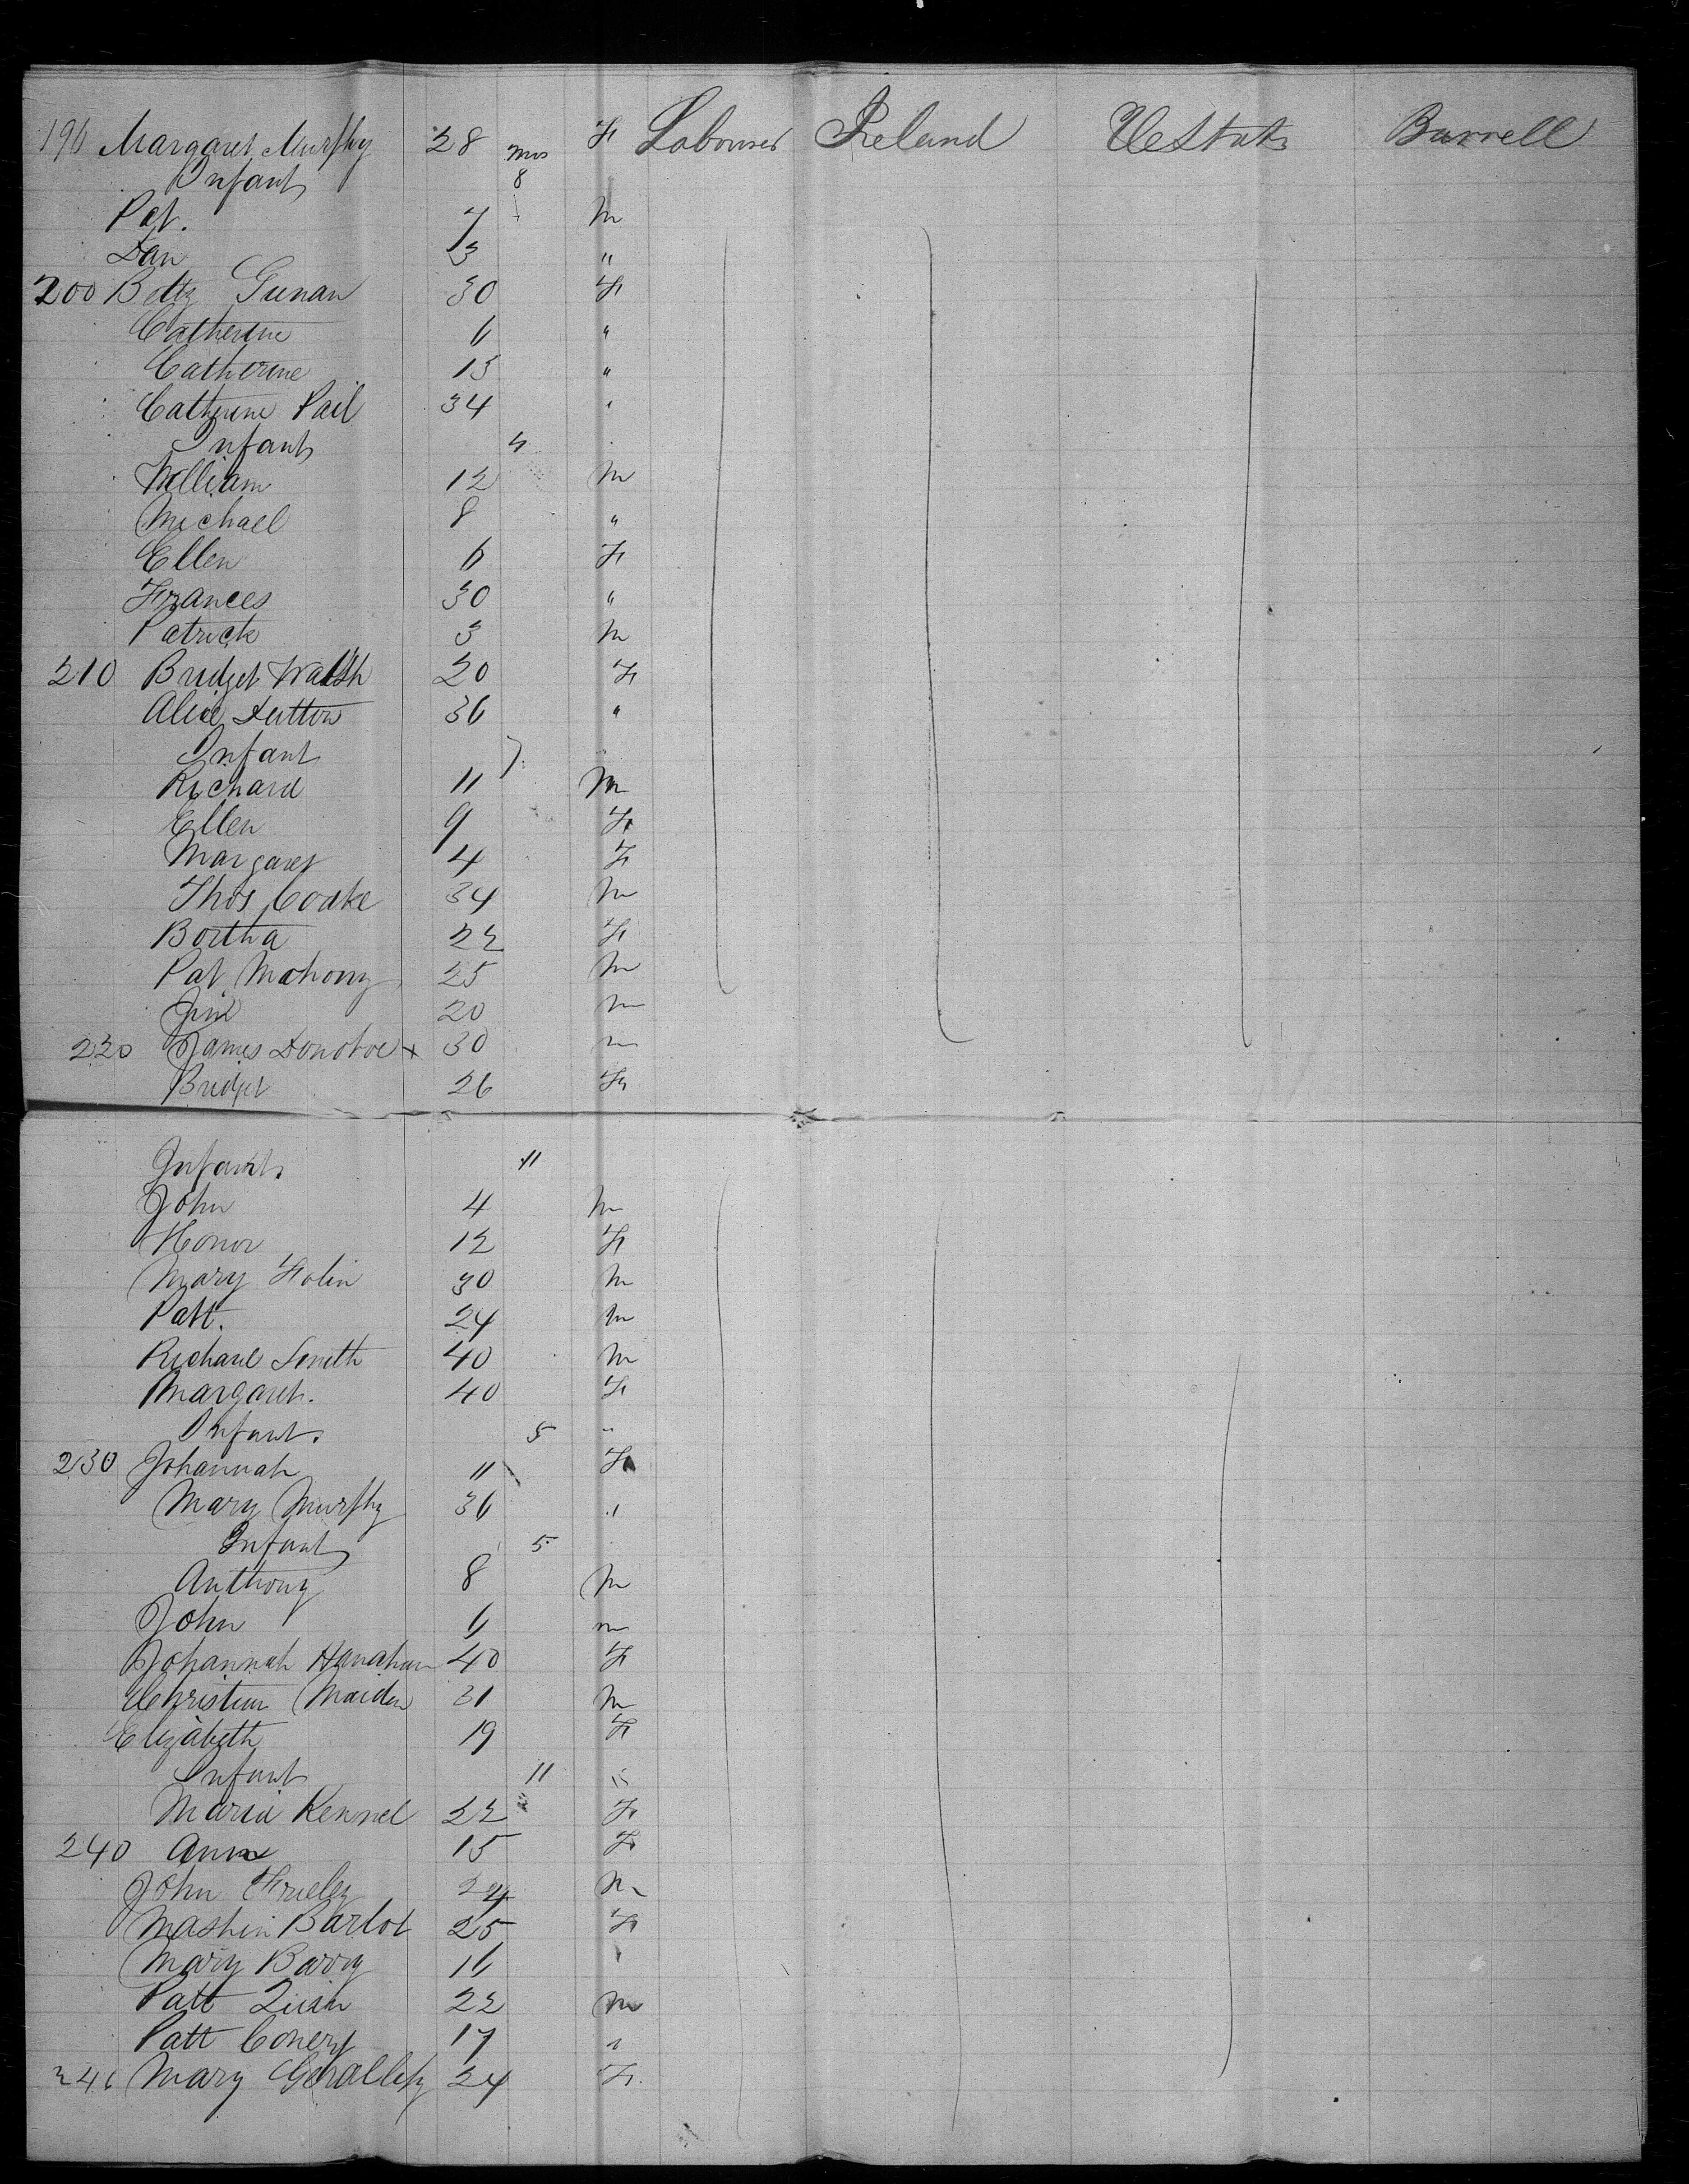 196 Margaret Murphy 28 F Labourer Ireland U States Burrell
Infant mos 8
Pat. 7 M
Dan 3 "
200 Betty 30 F
Catherine 6 "
Catherine 13 "
Catherine Pail 34 "
Infant 4
William 12 M
Michael 8 "
Ellen 6 F
Frances 30 "
Patrick 3 M
210 Bridget Walsh 20 F
Alice Dutton 36 "
Infant 7
Richard 11 M
Ellen 9 F
Margaret 4 F
Thos Coake 34 M
Bertha 22 F
Pat Mahony 25 M
20 M
220 James Donohoe x 30 M
Bridget 26 F
Infant. 11
John 4 M
Honor 12 F
Mary Folin 30 M
Patt. 24 M
Richard Smith 40 M
Margaret. 40 F
Infant. 5 "
230 Johannah 11 F
Mary Murphy 36 "
Infant 5
Anthony 8 M
John 6 M
Johannah Hanahan 40 F
Christian Maiden 31 M
Elizabeth 19 F
Infant 11 "
Maria Kennel 22 F
240 Ann 15 F
John Frieley 24 M
Barlot 25 F
Mary Barry 16 "
Patt Quin 22 M
Patt Conery 17 "
246 Mary 24 F.